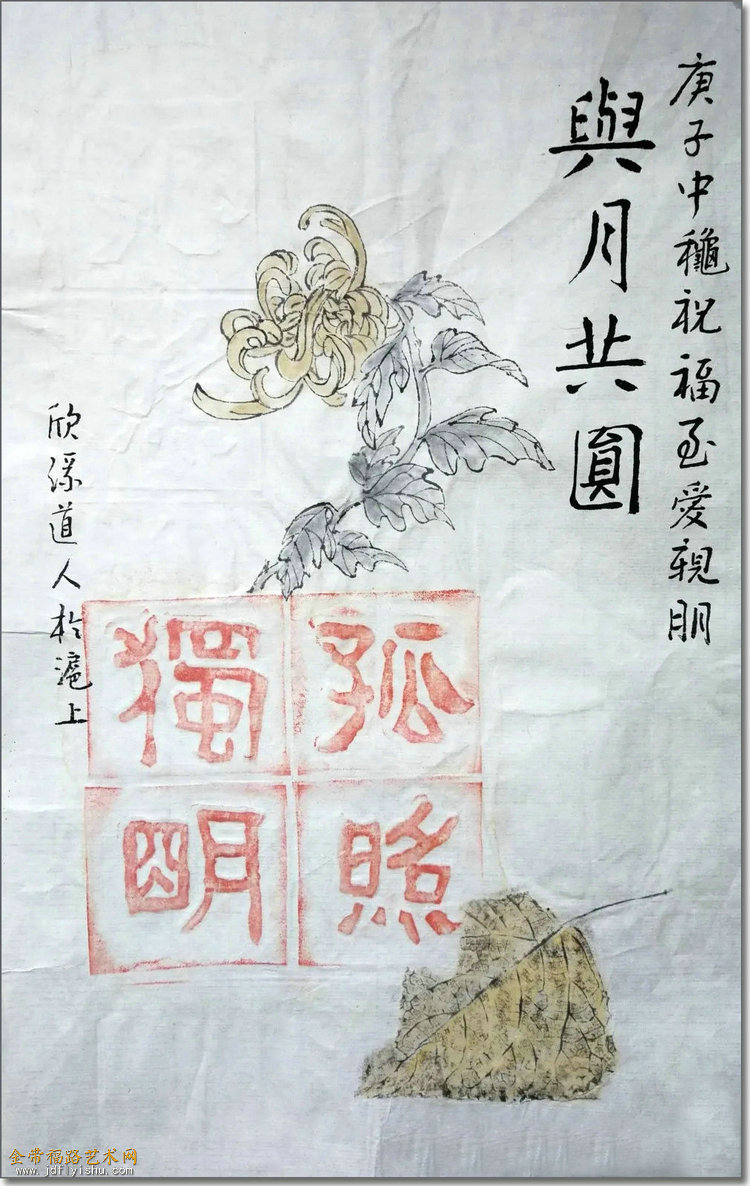 庚子中穐祝福至愛親朋
與月共圓
孤照
獨朙
欣道人於滬上
金带福路艺术网
www.jdflyishu.com